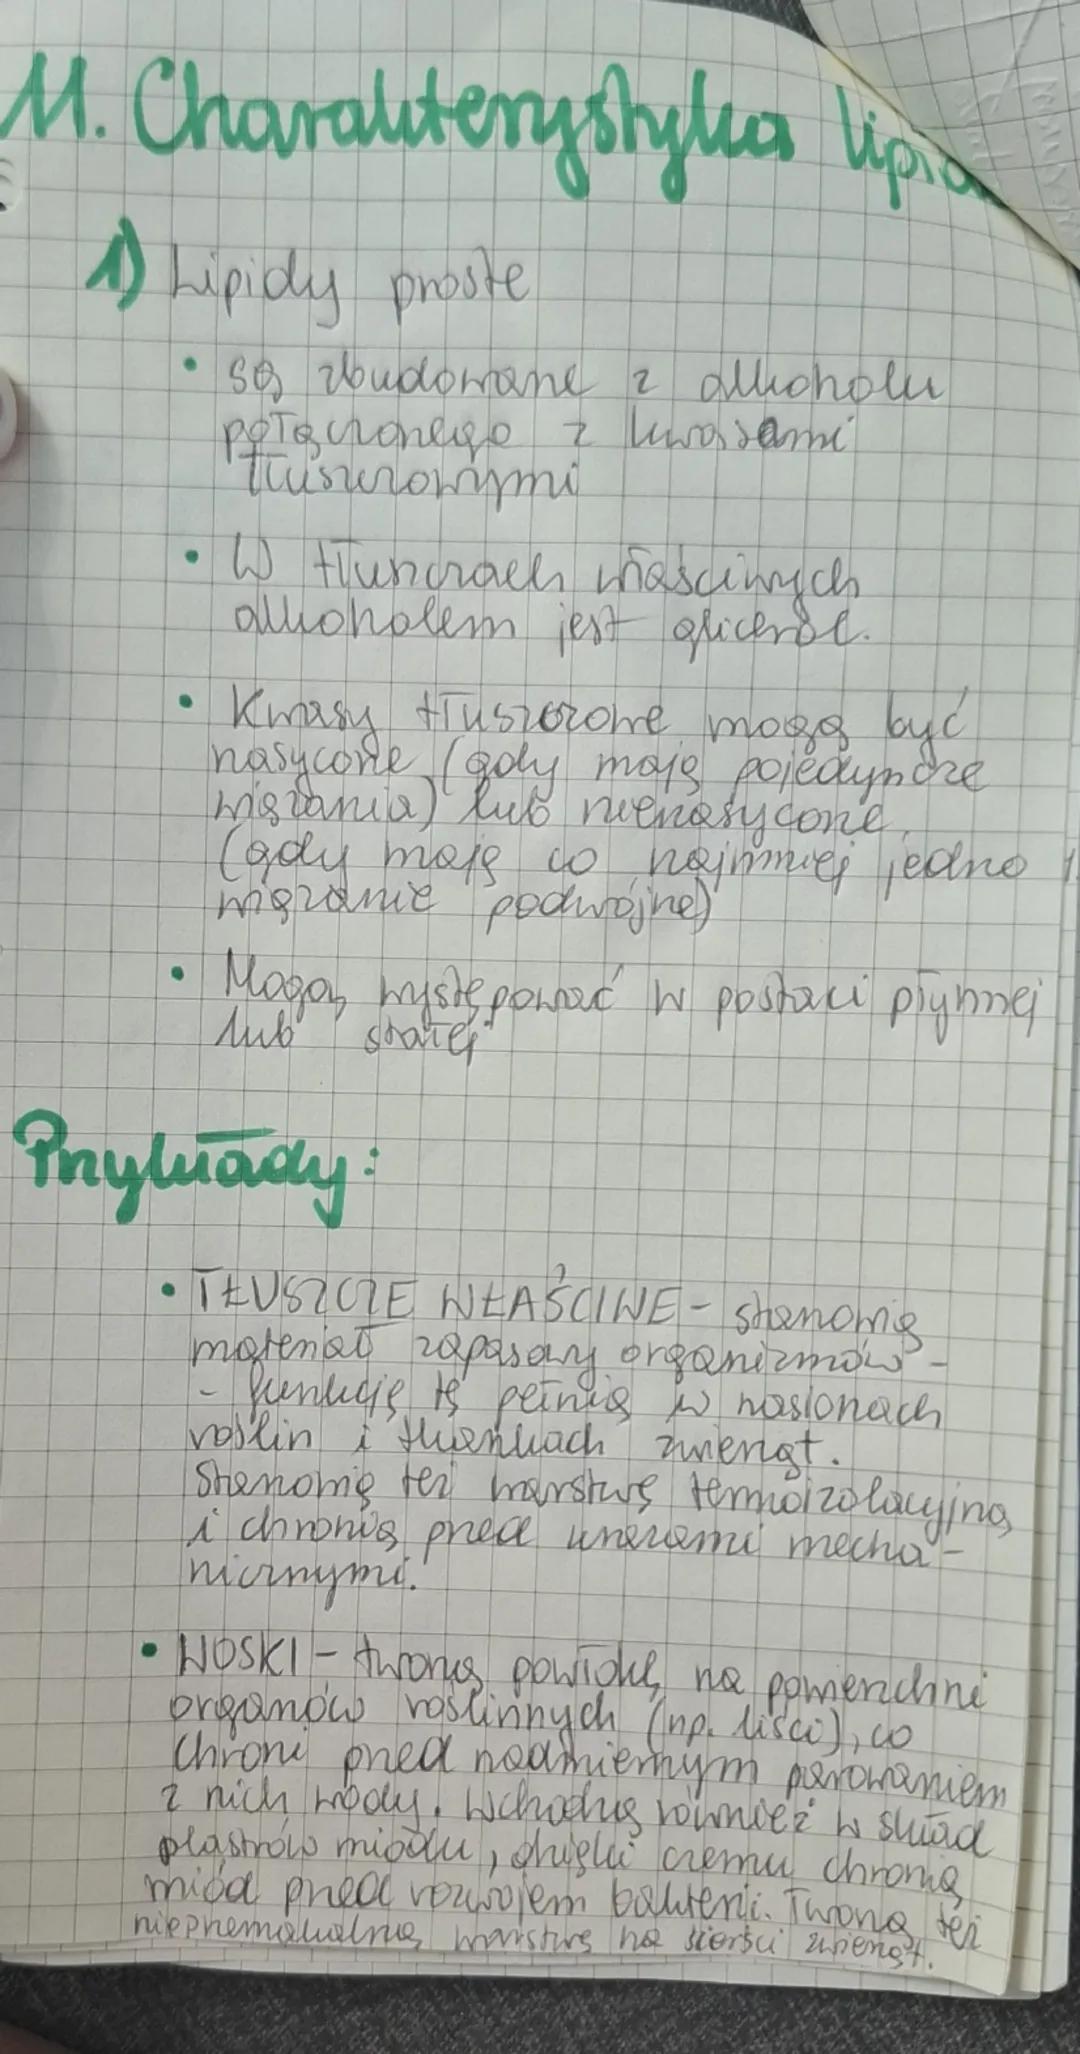 11. Charakterystyka lipid
1) Lipidy proste
• są zbudowane z alkoholu
połączonego z kwasami
tłuszczowymi
• W tłuszczach właściwych
alkoholem jest glicerol.
• Kwasy tłuszczowe mogą być
nasycone (gdy mają pojedyncze
wiązania) lub nienasycone
(gdy mają co najmniej jedno
wiązanie podwójne)
• Mogą występować w postaci płynnej
lub stałej
Przykłady:
• TŁUSZCZE WŁAŚCIWE - stanowią
materiał zapasowy organizmów -
- funkcję tę pełnią w nasionach
roślin i tkankach zwierząt.
Stanowią też warstwę termoizolacyjną
i chronią przed urazami mecha-
nicznymi.
• WOSKI - tworzą powłokę na powierzchni
organów roślinnych (np. liści), co
chroni przed nadmiernym parowaniem
z nich wody. Wchodzą również w skład
plastrów miodu, dzięki czemu chronią
miód przed rozwojem bakterii. Tworzą też
nieprzemakalną warstwę na sierści zwierząt.